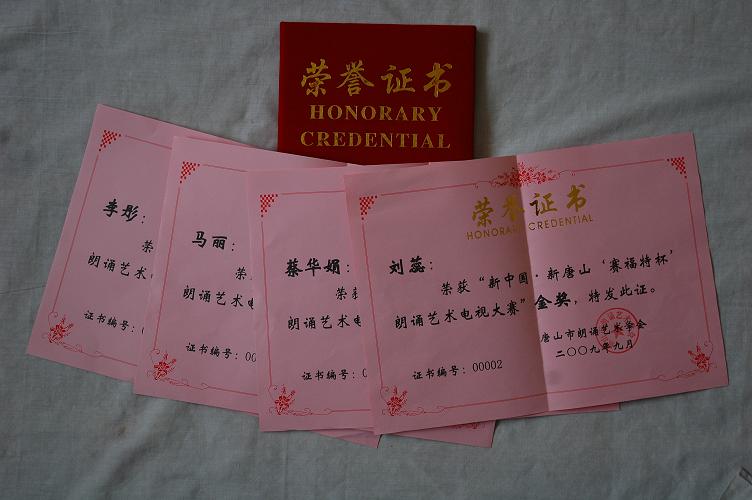 荣誉证书
HONORARY
CREDENTIAL
李彤：
荣
朗诵艺术电
证书编号：0
马丽：
荣
朗诵艺术电
证书编号：00
蔡华娟：
荣获
朗诵艺术电
证书编号：0
荣誉证书
HONORARY CREDENTIAL
刘蕊：
荣获“新中国·新唐山‘赛福特杯’
朗诵艺术电视大赛”金奖，特发此证。
唐山市朗诵艺术学会
二〇〇九年九月
证书编号：00002